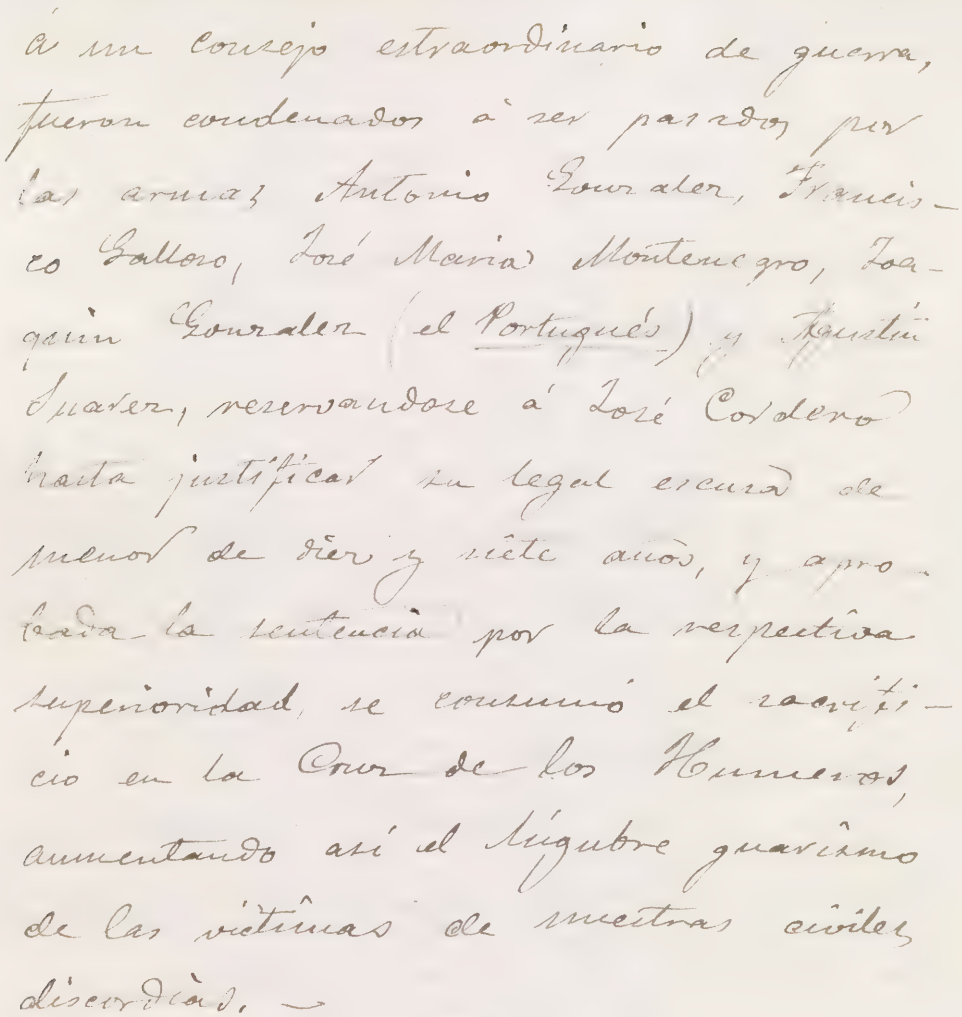 á un consejo estraordinario de guerra,
fueron condenados á ser pasados por
las armas Antonio Gonzalez, Francis-
co Galloso, José Maria Montenegro, Joa-
quin Gonzalez (el Portugués) y Agustin
Suarez, reservandose á José Cordero
hasta justificar su legal escusa de
menor de diez y siete años, y apro-
bada la sentencia por la respectiva
superioridad, se consumó el sacrifi-
cio en la Cruz de los Humeros,
aumentando así el lúgubre guarismo
de las victimas de nuestras civiles
discordias. —